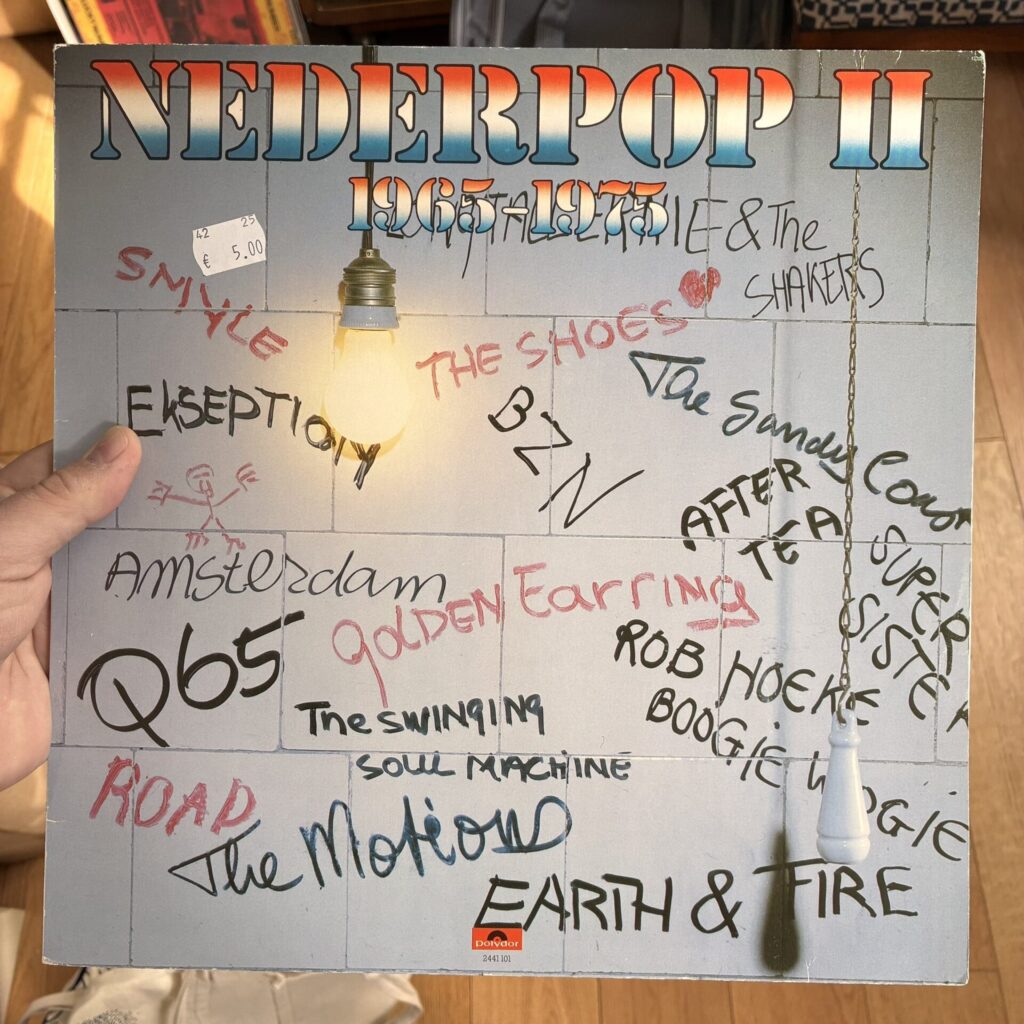 NEDERPOP II
1965-1975
& The
SHAKERS
42 25
€ 5.00
SMYLE
THE SHOES
EKSEPTION
BZN
The Sandy Coast
AFTER
TEA
SUPER
SISTER
Amsterdam
GOLDEN EARRING
Q65
ROB HOEKE
BOOGIE WOOGIE
The SWINGING
SOUL MACHINE
ROAD
The Motions
EARTH & FIRE
Polydor
2441 101